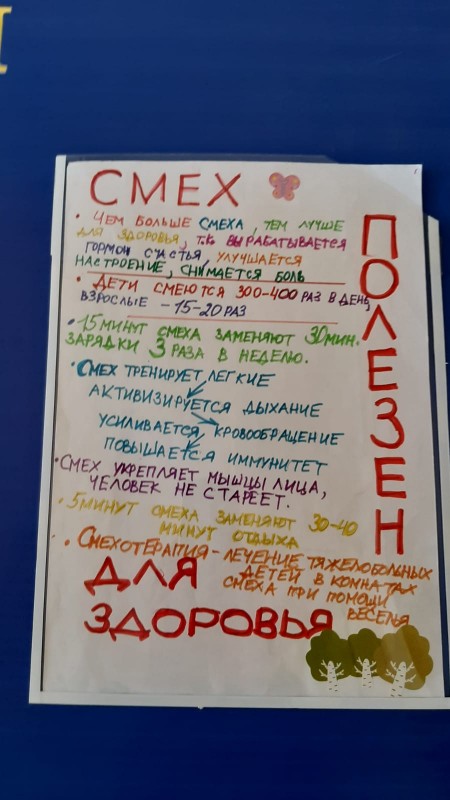 СМЕХ
ПОЛЕЗЕН
• Чем больше смеха, тем лучше
для здоровья, т.к. вырабатывается
гормон счастья, улучшается
настроение, снимается боль
• Дети смеются 300-400 раз в день,
взрослые - 15-20 раз
• 15 минут смеха заменяют 30 мин.
зарядки 3 раза в неделю.
• Смех тренирует легкие
активизируется дыхание
усиливается кровообращение
повышается иммунитет
• Смех укрепляет мышцы лица,
человек не стареет.
• 5 минут смеха заменяют 30-40
минут отдыха
• Смехотерапия - лечение тяжелобольных
детей в комнатах
смеха при помощи
веселья
ДЛЯ
ЗДОРОВЬЯ